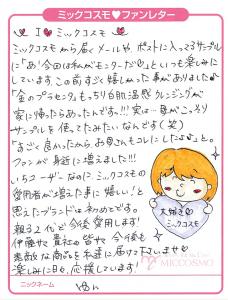 ミックコスモ♥ファンレター
♥ I ♥ ミックコスモ ♥
ミックコスモから届くメールや、ポストに入ってるサンプル
に「あ!今回は私がモニターだ♡」といつも楽しみに
しています。この前すごく嬉しかった事がありました♪
「金のプラセンタ」もっちり白肌温感クレンジングが
家に帰ったらあったんです!!!実は…母がこっそり
サンプルを使ってたみたいなんです(笑)
「すごく良かったからお母さんもコレにしたよ♪」と。
ファンが身近に増えました!!!
いちユーザーなのに、ミックコスモの
愛用者が増えた事に嬉しい!と
思えたブランドは初めてです。
親子2代で今後愛用します!
伊藤サマ、貴社の皆サマ、今後も
素敵な商品を私達に届けて下さいませ♡
楽しみに日々、応援しています!
大好き♡
ミックコスモ
MICCOSMO
ニックネーム
ゆん